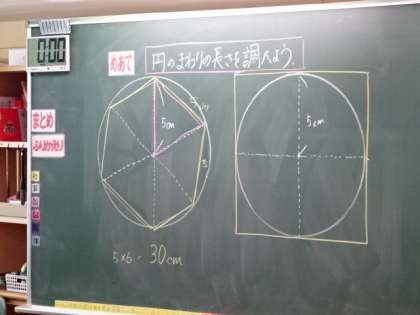 0:00
めあて
円のまわりの長さを調べよう.
まとめ
ふりかえり
5cm
5cm
5
5cm
5×6=30cm